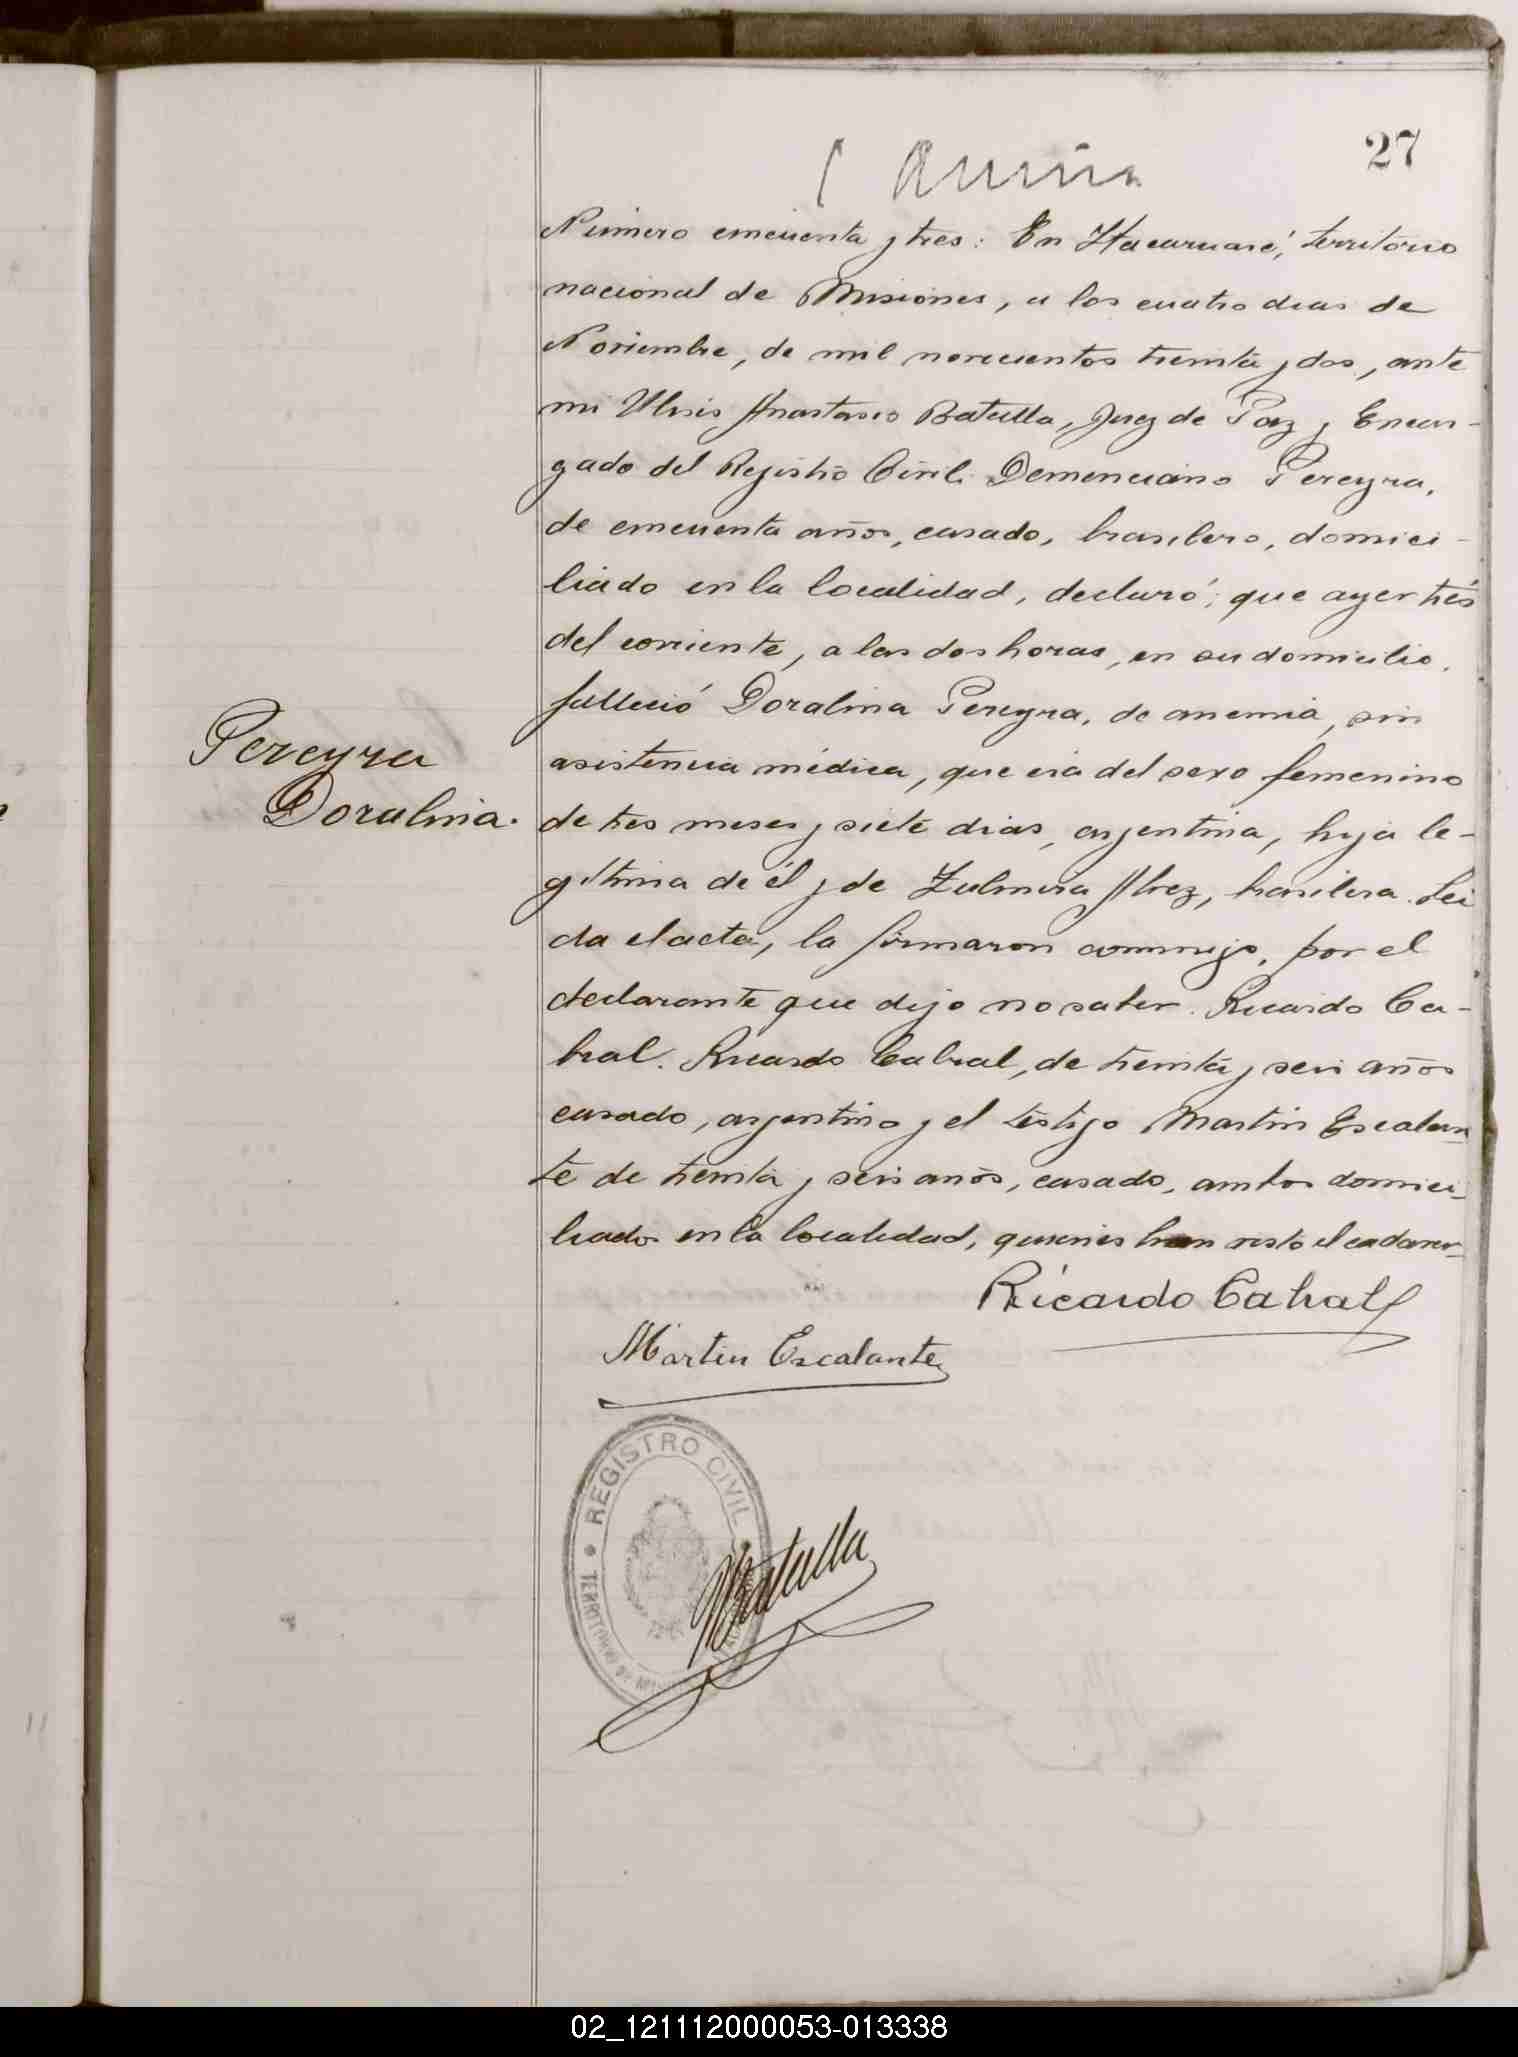 27
Número cincuenta y tres: En Itacaruaré, territorio
nacional de Misiones, a los cuatro dias de
Noviembre, de mil novecientos treinta y dos, ante
mi Ulises Anastasio Batulla, Juez de Paz y Encar-
gado del Registro Civil: Demenciano Pereyra,
de cincuenta años, casado, brasilero, domici-
liado en la localidad, declaró; que ayer tres
del corriente, a las dos horas, en su domicilio,
falleció Doralina Pereyra, de anemia, sin
asistencia médica, que era del sexo femenino
Pereyra
Doralina.
de tres meses y siete dias, argentina, hija le-
gítima de él y de Zulmira, brasilera. Lei
da el acta, la firmaron conmigo, por el
declarante que dijo no saber. Ricardo Ca-
bral. Ricardo Cabral, de treinta y seis años
casado, argentino y el testigo Martin Escalan
te de treinta y seis anos, casado, ambos domici-
liados en la localidad, quienes han visto el cadaver
Ricardo Cabral
Martin Escalante
REGISTRO CIVIL
TERRITORIO DE MISIONES
Batulla
02_121112000053-013338